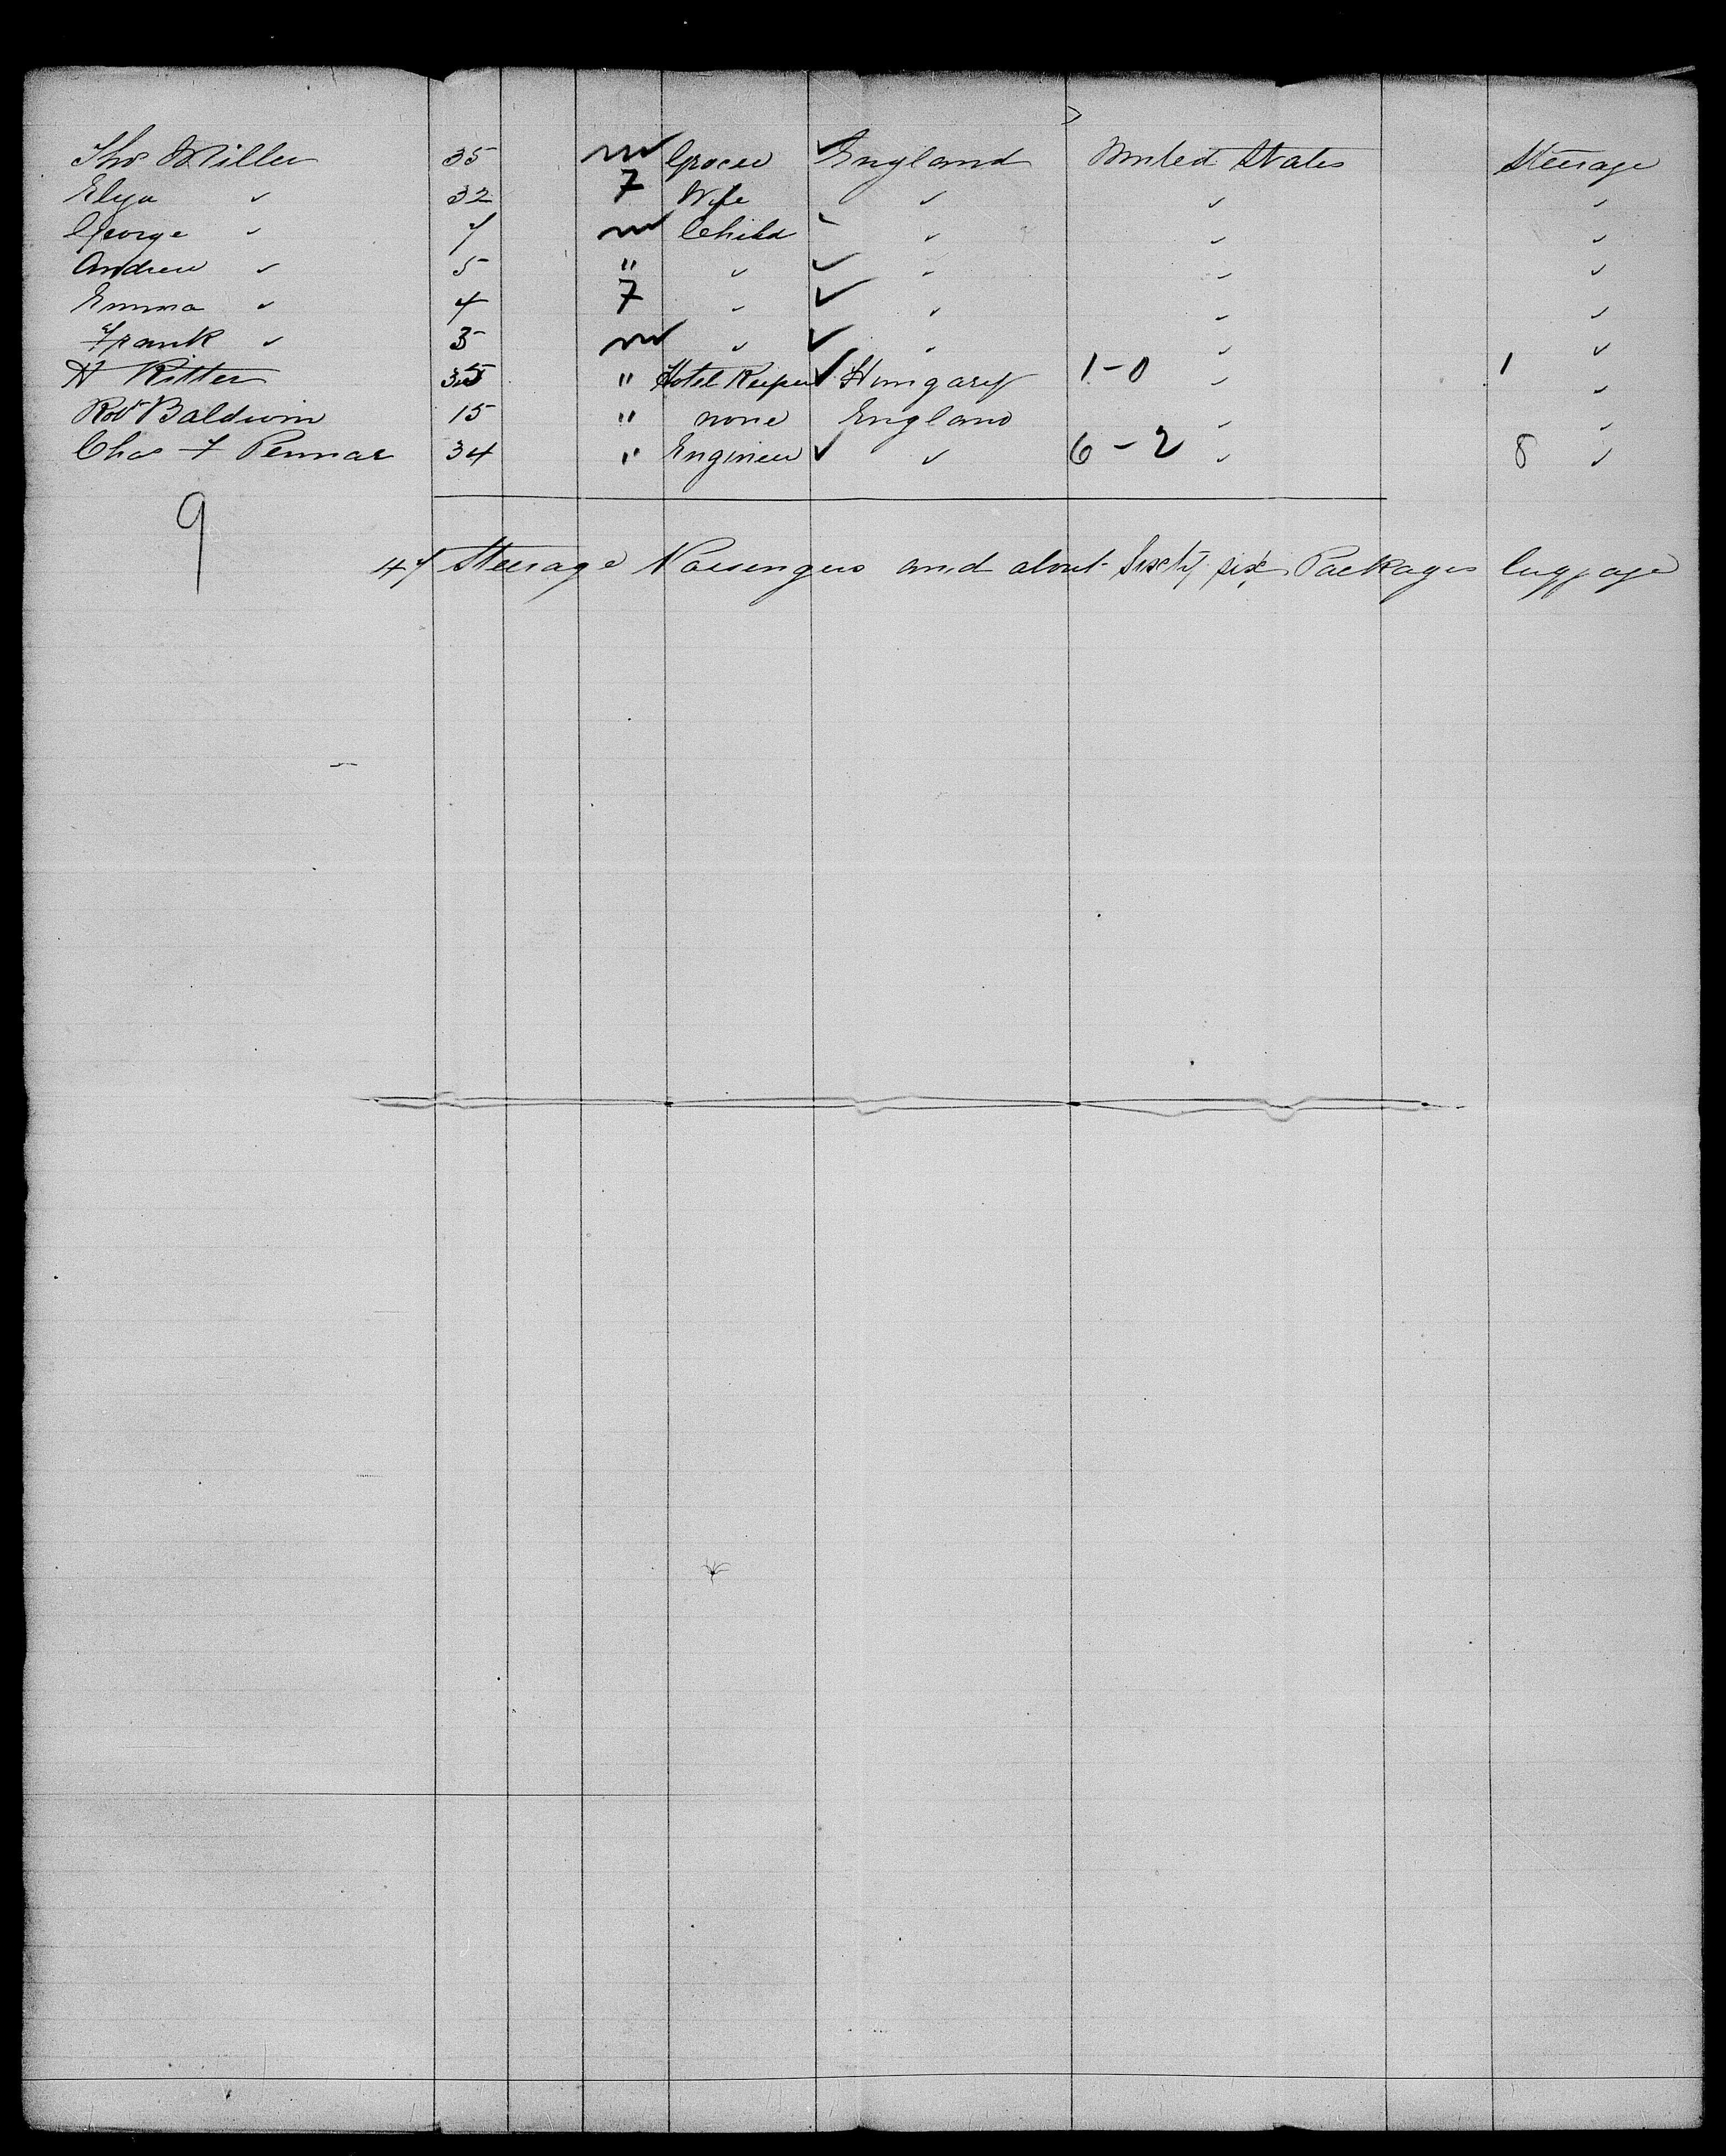 Thos Miller 35 m Grocer England United States Steerage
Eliza " 32 F Wife " " "
George " 7 m Child " " "
Andrew " 5 " " " " "
Emma " 4 F " " " "
Frank " 3 m " " " "
H Ritter 35 " Hotel Keeper Hungary 1-0 " 1 "
Robt Baldwin 15 " none England " "
Chas F Pennar 34 " Engineer " 6-2 " 8 "
9
47 Steerage Passengers and about Sixty six Packages luggage